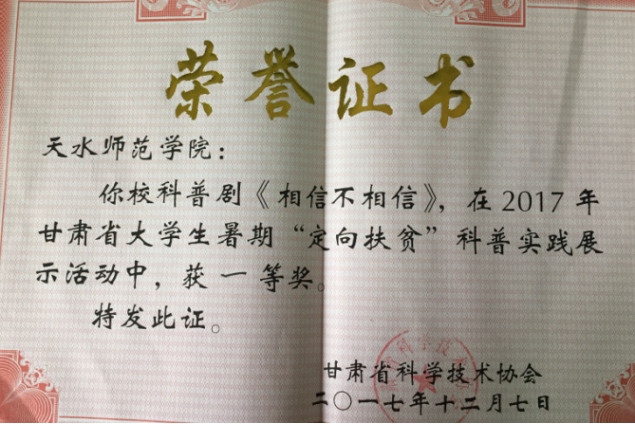 荣誉证书
天水师范学院：
你校科普剧《相信不相信》，在2017年
甘肃省大学生暑期“定向扶贫”科普实践展
示活动中，获一等奖。
特发此证。
甘肃省科学技术协会
二〇一七年十二月七日